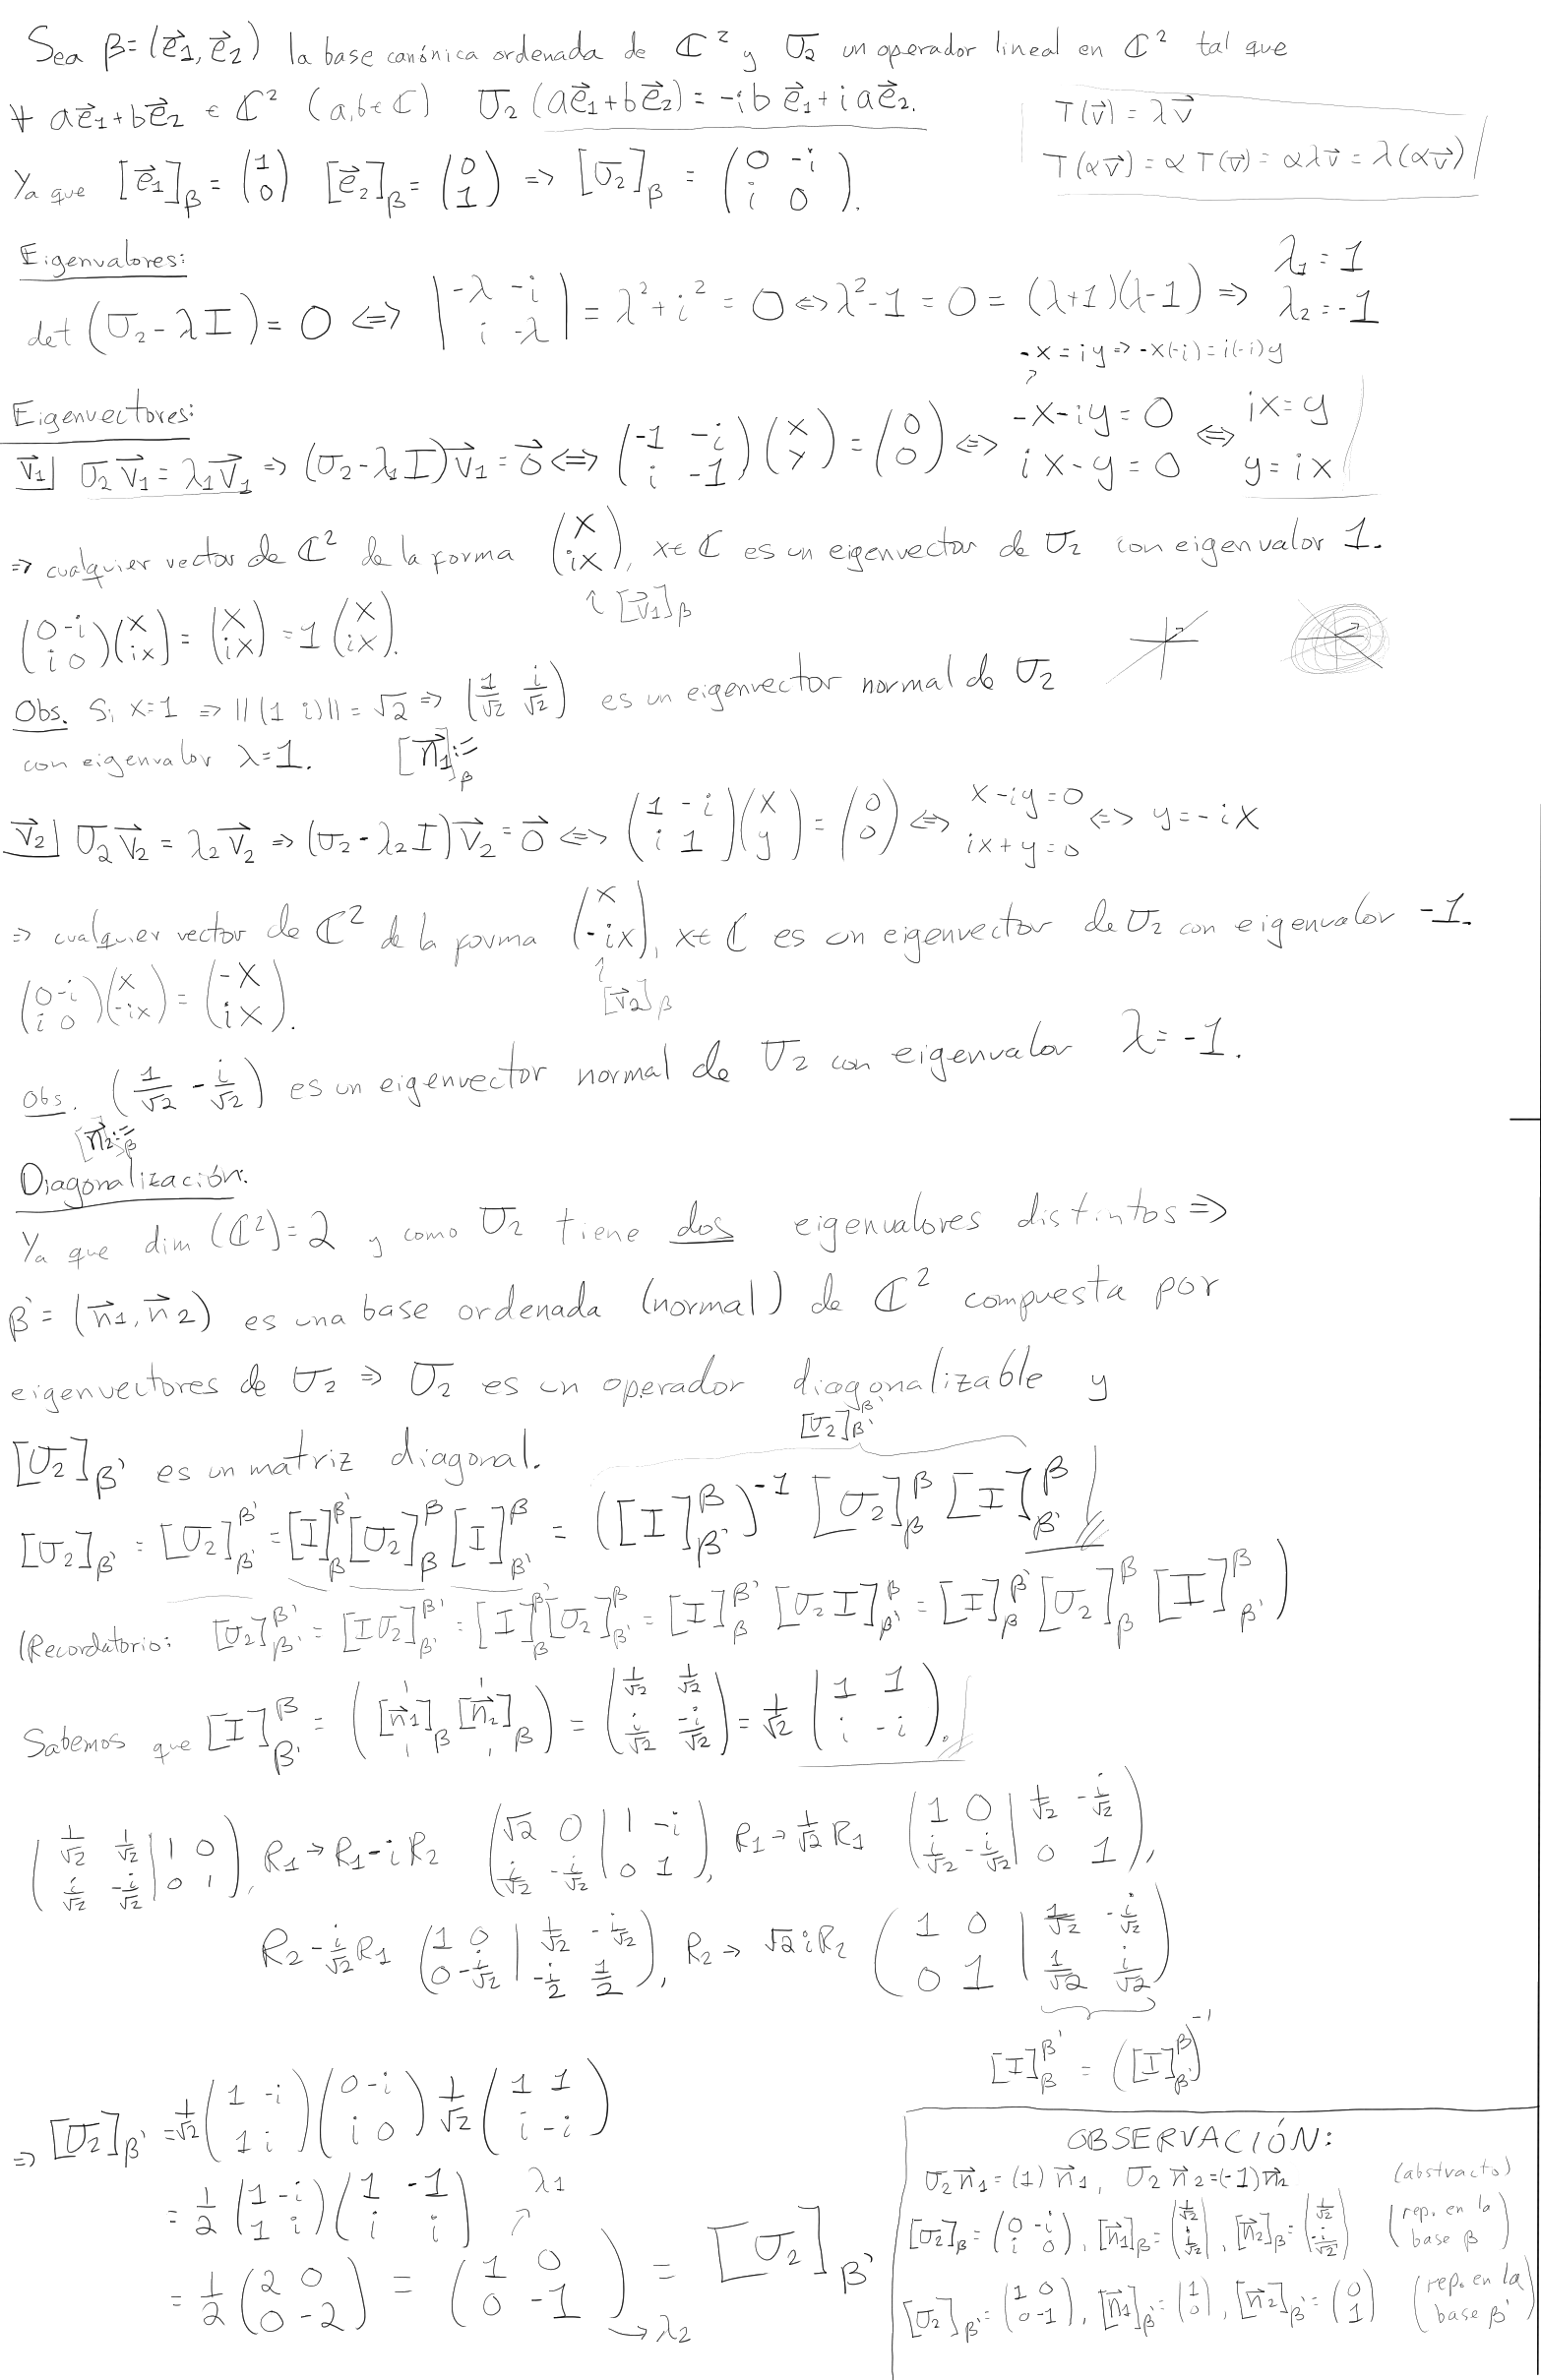 Sea β=(e⃗1, e⃗2) la base canónica ordenada de ℂ² y σ2 un operador lineal en ℂ² tal que
∀ ae⃗1+be⃗2 ∈ ℂ² (a,b∈ℂ) σ2(ae⃗1+be⃗2)=-ib e⃗1+iae⃗2.
T(v⃗)=λv⃗
T(αv⃗)=αT(v⃗)=αλv⃗=λ(αv⃗)
Ya que [e⃗1]β=(1 0) [e⃗2]β=(0 1) ⇒ [σ2]β = (0 -i ; i 0).
Eigenvalores:
det(σ2-λI)=0 ⇔ |-λ -i ; i -λ| = λ²+i² = 0 ⇔ λ²-1=0=(λ+1)(λ-1) ⇒ λ1=1 λ2=-1
-x=iy ⇒ -x(-i)=i(-i)y
Eigenvectores:
v⃗1| σ2v⃗1=λ1v⃗1 ⇒ (σ2-λ1I)v⃗1=0⃗ ⇔ (-1 -i ; i -1)(x ; y)=(0 ; 0) ⇔ -x-iy=0 ix-y=0 ⇔ ix=y y=ix
⇒ cualquier vector de ℂ² de la forma (x ; ix), x∈ℂ es un eigenvector de σ2 con eigenvalor 1.
[v⃗1]β
(0 -i ; i 0)(x ; ix)=(x ; ix)=1(x ; ix).
Obs. Si x=1 ⇒ ||(1 i)||=√2 ⇒ (1/√2 i/√2) es un eigenvector normal de σ2
con eigenvalor λ=1. [n⃗1]β:=
v⃗2| σ2v⃗2=λ2v⃗2 ⇒ (σ2-λ2I)v⃗2=0⃗ ⇔ (1 -i ; i 1)(x ; y)=(0 ; 0) ⇔ x-iy=0 ix+y=0 ⇔ y=-ix
⇒ cualquier vector de ℂ² de la forma (x ; -ix), x∈ℂ es un eigenvector de σ2 con eigenvalor -1.
[v⃗2]β
(0 -i ; i 0)(x ; -ix)=(-x ; ix).
Obs. (1/√2 -i/√2) es un eigenvector normal de σ2 con eigenvalor λ=-1.
[n⃗2]β:=
Diagonalización:
Ya que dim(ℂ²)=2 y como σ2 tiene dos eigenvalores distintos ⇒
β'=(n⃗1, n⃗2) es una base ordenada (normal) de ℂ² compuesta por
eigenvectores de σ2 ⇒ σ2 es un operador diagonalizable y
[σ2]β' es un matriz diagonal.
[σ2]β'^β'
[σ2]β' = [σ2]β'^β' = [I]β^β' [σ2]β^β [I]β'^β = ([I]β'^β)^-1 [σ2]β^β [I]β'^β
(Recordatorio: [σ2]β'^β' = [Iσ2]β'^β' = [I]β^β' [σ2]β'^β = [I]β^β' [σ2I]β'^β = [I]β^β' [σ2]β^β [I]β'^β)
Sabemos que [I]β'^β = ([n⃗1]β [n⃗2]β) = (1/√2 1/√2 ; i/√2 -i/√2) = 1/√2 (1 1 ; i -i).
(1/√2 1/√2 | 1 0 ; i/√2 -i/√2 | 0 1), R1→R1-iR2 (√2 0 | 1 -i ; i/√2 -i/√2 | 0 1), R1→1/√2 R1 (1 0 | 1/√2 -i/√2 ; i/√2 -i/√2 | 0 1),
R2-i/√2 R1 (1 0 | 1/√2 -i/√2 ; 0 -i/√2 | -i/2 1/2), R2→√2iR2 (1 0 | 1/√2 -i/√2 ; 0 1 | 1/√2 i/√2)
[I]β^β' = ([I]β'^β)^-1
⇒ [σ2]β' = 1/√2 (1 -i ; 1 i)(0 -i ; i 0) 1/√2 (1 1 ; i -i)
= 1/2 (1 -i ; 1 i)(1 -1 ; i i) λ1
= 1/2 (2 0 ; 0 -2) = (1 0 ; 0 -1) = [σ2]β'
λ2
OBSERVACIÓN:
σ2n⃗1=(1)n⃗1, σ2n⃗2=(-1)n⃗2 (abstracto)
[σ2]β=(0 -i ; i 0), [n⃗1]β=(1/√2 ; i/√2), [n⃗2]β=(1/√2 ; -i/√2) (rep. en la base β)
[σ2]β'=(1 0 ; 0 -1), [n⃗1]β'=(1 ; 0), [n⃗2]β'=(0 ; 1) (rep. en la base β')